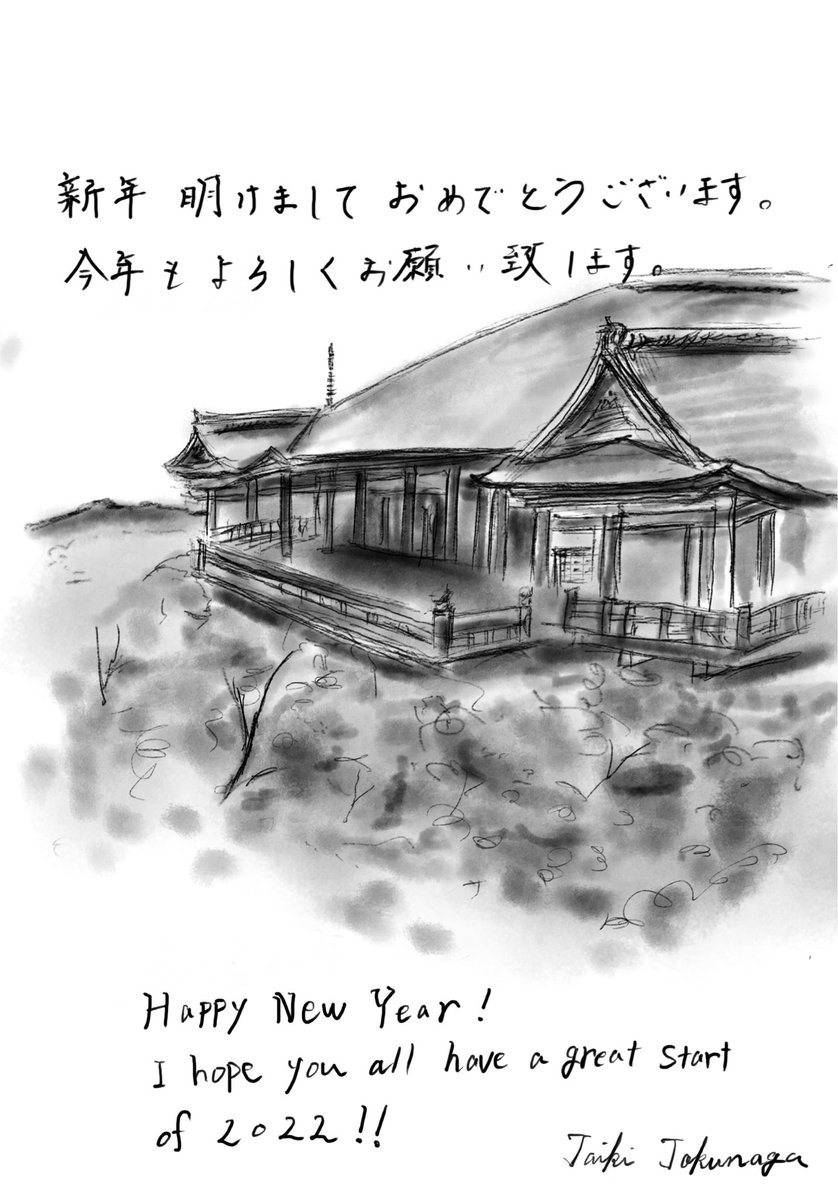 新年 明けまして おめでとうございます。
今年もよろしくお願い致します。
Happy New Year!
I hope you all have a great start
of 2022!!
Taiki Tokunaga